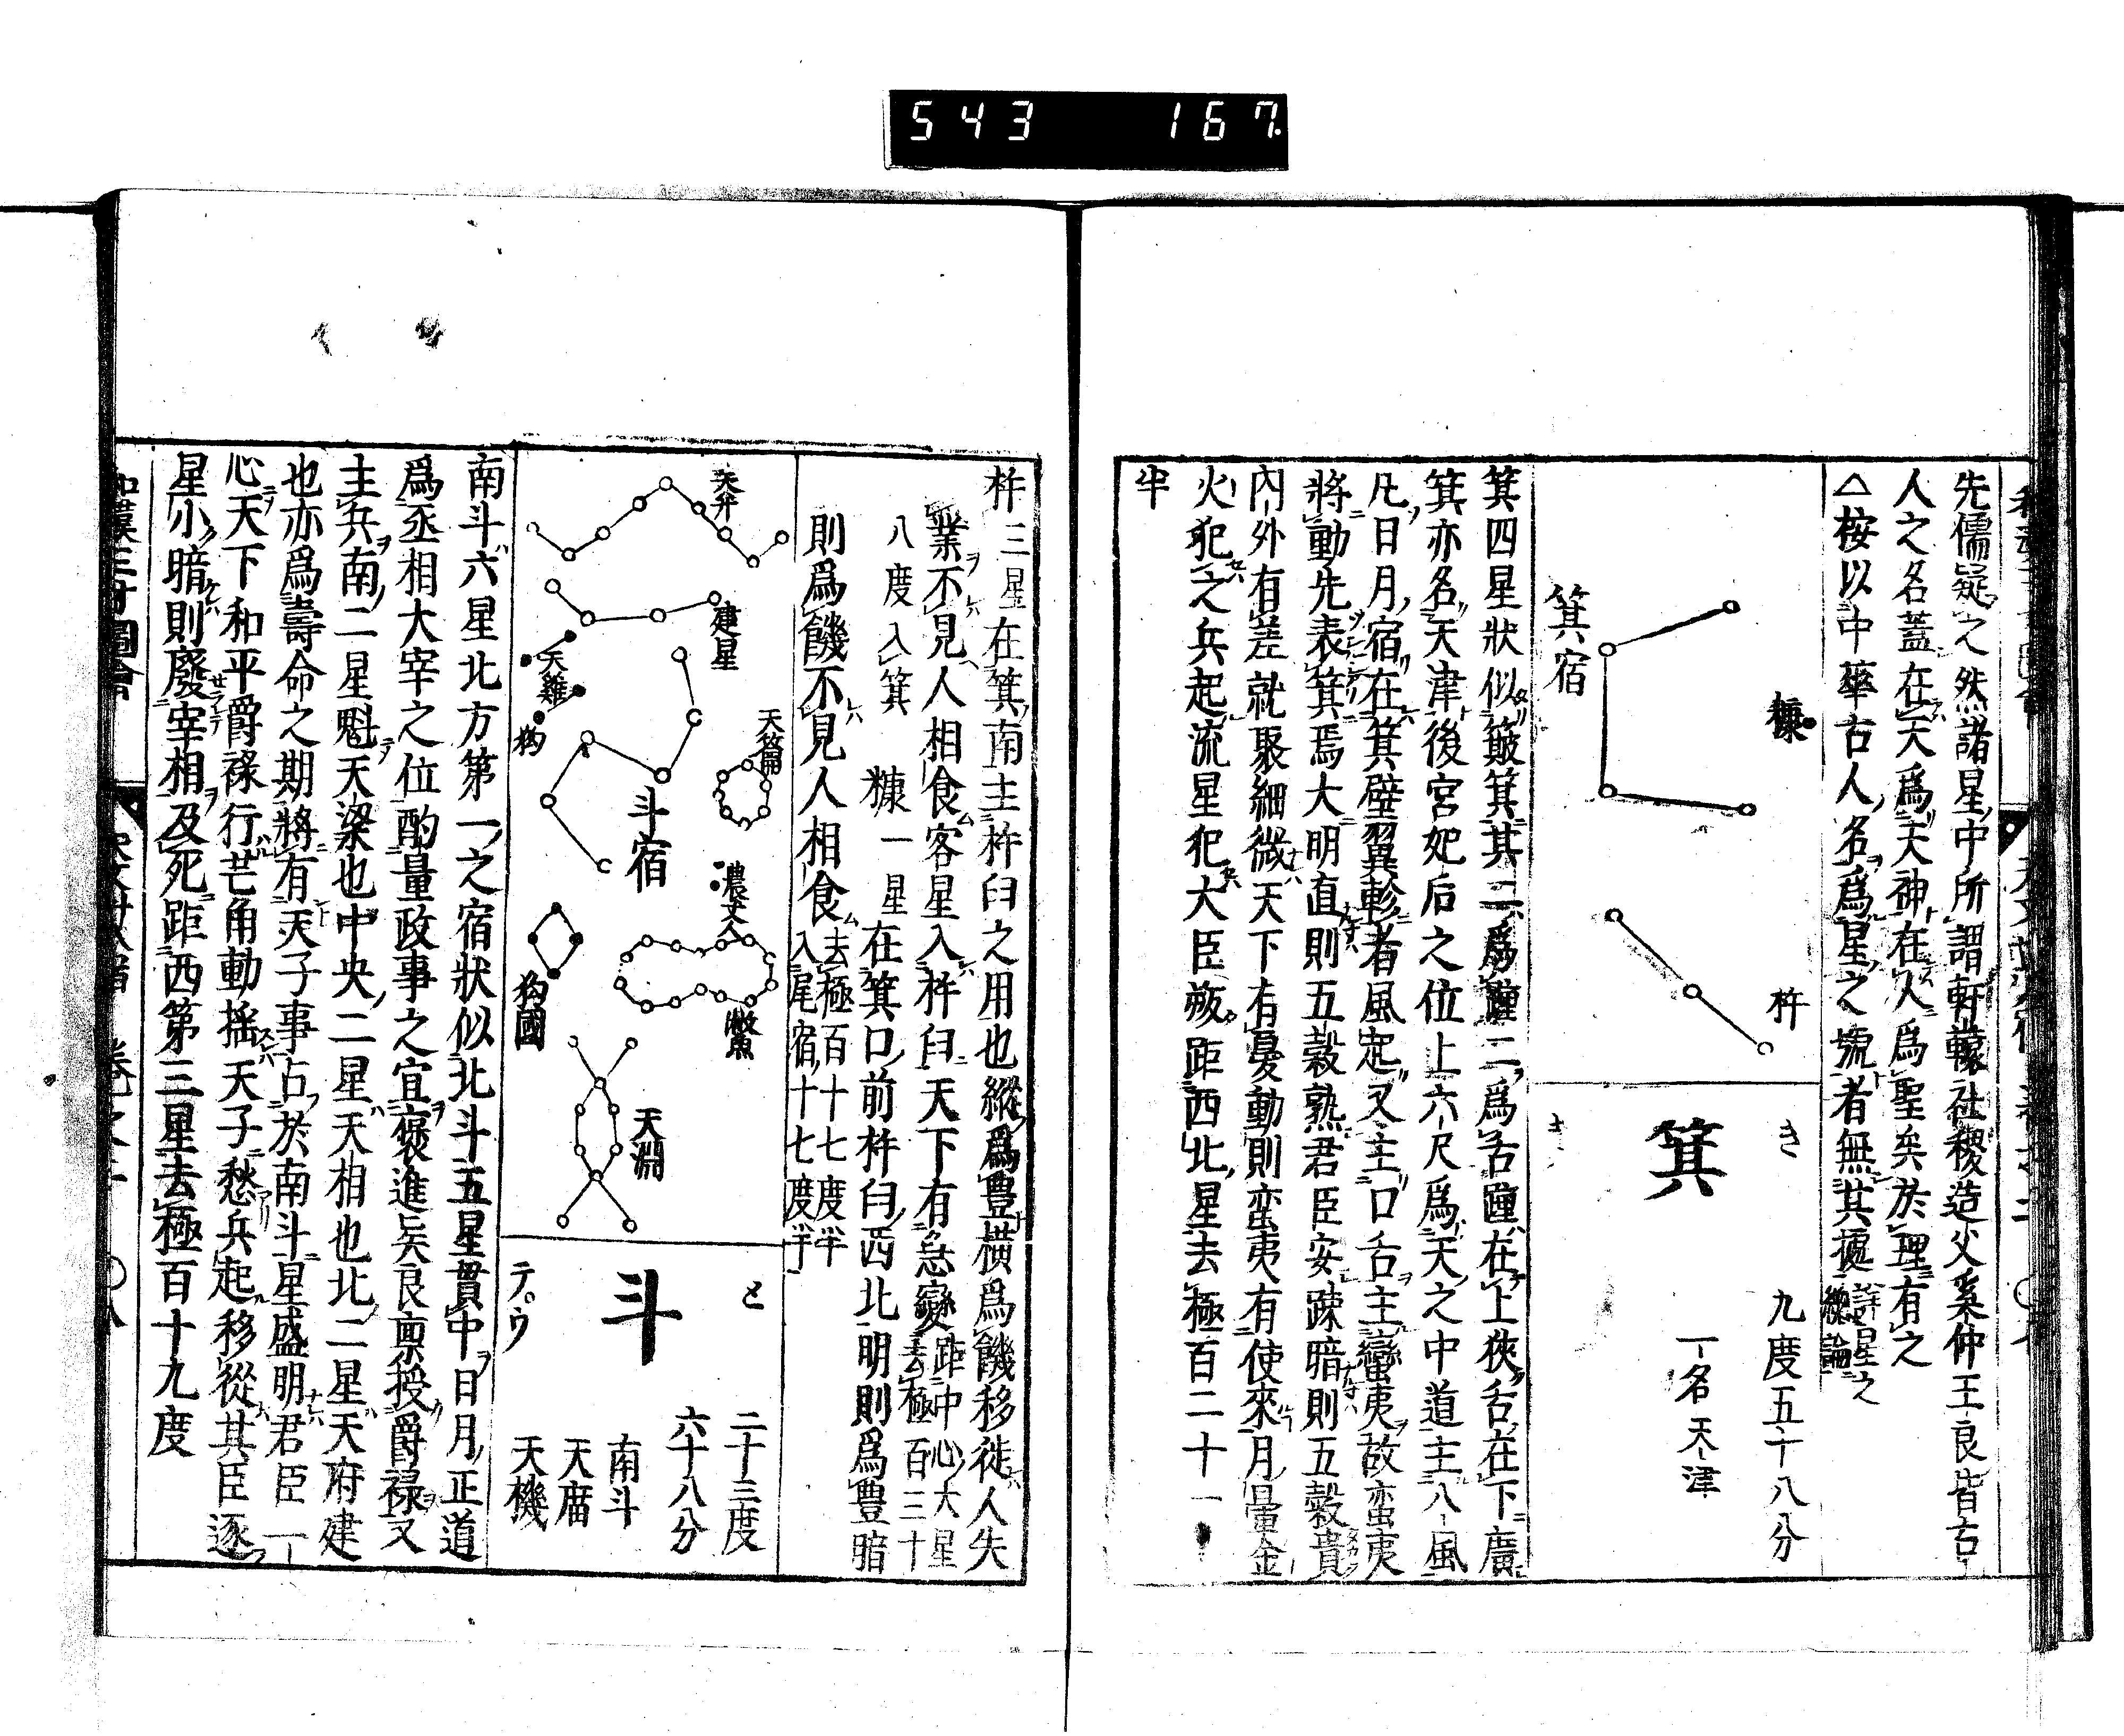 543 167.
先儒疑之然諸星中所謂軒轅社稷造父奚仲王良皆古
人之名蓋在天爲天神在人爲聖矣於理有之
△桉以中華古人名爲星之號者無其據詳星之總論
糠
杵
箕宿
き
箕
九度五十八分
一名天津
箕四星狀似簸箕其二爲踵二爲舌踵在上狹舌在下廣
箕亦名天津後宮妃后之位上六尺爲天之中道主八風
凡日月宿在箕壁翼軫者風起又主口舌主蠻夷故蛮夷
將動先表箕焉大明直則五穀熟君臣安疎暗則五穀貴
內外有差就聚細微天下有憂動則蛮夷有使來月暈金
火犯之兵起流星犯大臣叛距西北星去極百二十一
半
杵三星在箕南主杵臼之用也縱爲豊橫爲饑移徙人失
業不見人相食客星入杵臼天下有急變距中心大星去極百三十
八度入箕 糠一星在箕口前杵臼西北明則爲豊暗
則爲饑不見人相食去極百十七度半入尾宿十七度半
天弁
建星
天雞
狗
天籥
斗宿
農丈人
狗國
鱉
天淵
と
斗
テウ
二十三度
六十八分
南斗
天庿
天機
南斗六星北方第一之宿狀似北斗五星貫中日月正道
爲丞相大宰之位酌量政事之宜褒進兵良禀授爵祿又
主兵南二星魁天梁也中央二星天相也北二星天府建
也亦爲壽命之期將有天子事占於南斗星盛明君臣一
心天下和平爵祿行芒角動揺天子愁兵起移從其臣逐
星小暗則廢宰相及死距西第三星去極百十九度